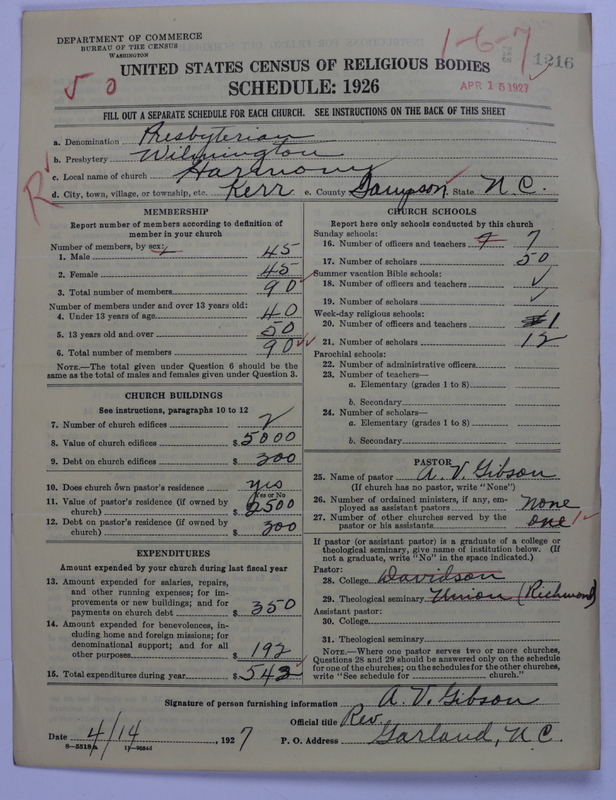 DEPARTMENT OF COMMERCE
BUREAU OF THE CENSUS
WASHINGTON
1-6-7
1216
APR 15 1927
UNITED STATES CENSUS OF RELIGIOUS BODIES
SCHEDULE: 1926
FILL OUT A SEPARATE SCHEDULE FOR EACH CHURCH. SEE INSTRUCTIONS ON THE BACK OF THIS SHEET
a. Denomination Presbyterian
b. Presbytery Wilmington
c. Local name of church Harmony
R
d. City, town, village, or township, etc. Kerr e. County Sampson, State N.C.
MEMBERSHIP
Report number of members according to definition of
member in your church
Number of members, by sex:
1. Male 45
2. Female 45
3. Total number of members 90
Number of members under and over 13 years old:
4. Under 13 years of age 40
5. 13 years old and over 50
6. Total number of members 90
NOTE.—The total given under Question 6 should be the
same as the total of males and females given under Question 3.
CHURCH BUILDINGS
See instructions, paragraphs 10 to 12
7. Number of church edifices 2
8. Value of church edifices $5000
9. Debt on church edifices $300
10. Does church own pastor's residence yes
Yes or No
11. Value of pastor's residence (if owned by
church) $2500
12. Debt on pastor's residence (if owned by
church) $300
EXPENDITURES
Amount expended by your church during last fiscal year
13. Amount expended for salaries, repairs,
and other running expenses; for im-
provements or new buildings; and for
payments on church debt $350
14. Amount expended for benevolences, in-
cluding home and foreign missions; for
denominational support; and for all
other purposes $192
15. Total expenditures during year $542
CHURCH SCHOOLS
Report here only schools conducted by this church
Sunday schools:
16. Number of officers and teachers 7
17. Number of scholars 50
Summer vacation Bible schools:
18. Number of officers and teachers
19. Number of scholars
Week-day religious schools:
20. Number of officers and teachers 1
21. Number of scholars 12
Parochial schools:
22. Number of administrative officers
23. Number of teachers—
a. Elementary (grades 1 to 8)
b. Secondary
24. Number of scholars—
a. Elementary (grades 1 to 8)
b. Secondary
PASTOR
25. Name of pastor A. V. Gibson
(If church has no pastor, write "None")
26. Number of ordained ministers, if any, em-
ployed as assistant pastors none
27. Number of other churches served by the
pastor or his assistants one
If pastor (or assistant pastor) is a graduate of a college or
theological seminary, give name of institution below. (If
not a graduate, write "No" in the space indicated.)
Pastor:
28. College Davidson
29. Theological seminary Union (Richmond)
Assistant pastor:
30. College
31. Theological seminary
NOTE.—Where one pastor serves two or more churches,
Questions 28 and 29 should be answered only on the schedule
for one of the churches; on the schedules for the other churches,
write "See schedule for church."
Signature of person furnishing information A. V. Gibson
Official title Rev.
Date 4/14, 1927 P. O. Address Garland, N.C.